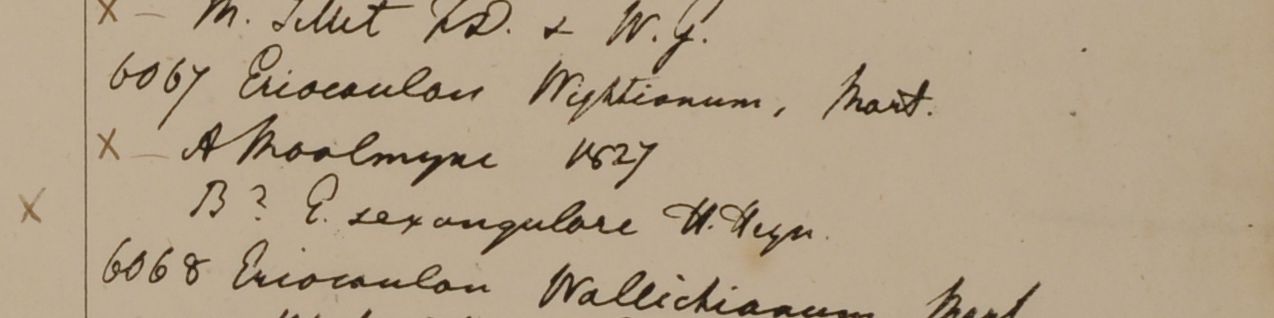 x — M. Sillet F.D. & W. G.
6067 Eriocaulon Wightianum, Mart.
x — A Moolmyne 1827
x B? E. sexangulare H. Heyn.
6068 Eriocaulon Wallichianum Mart